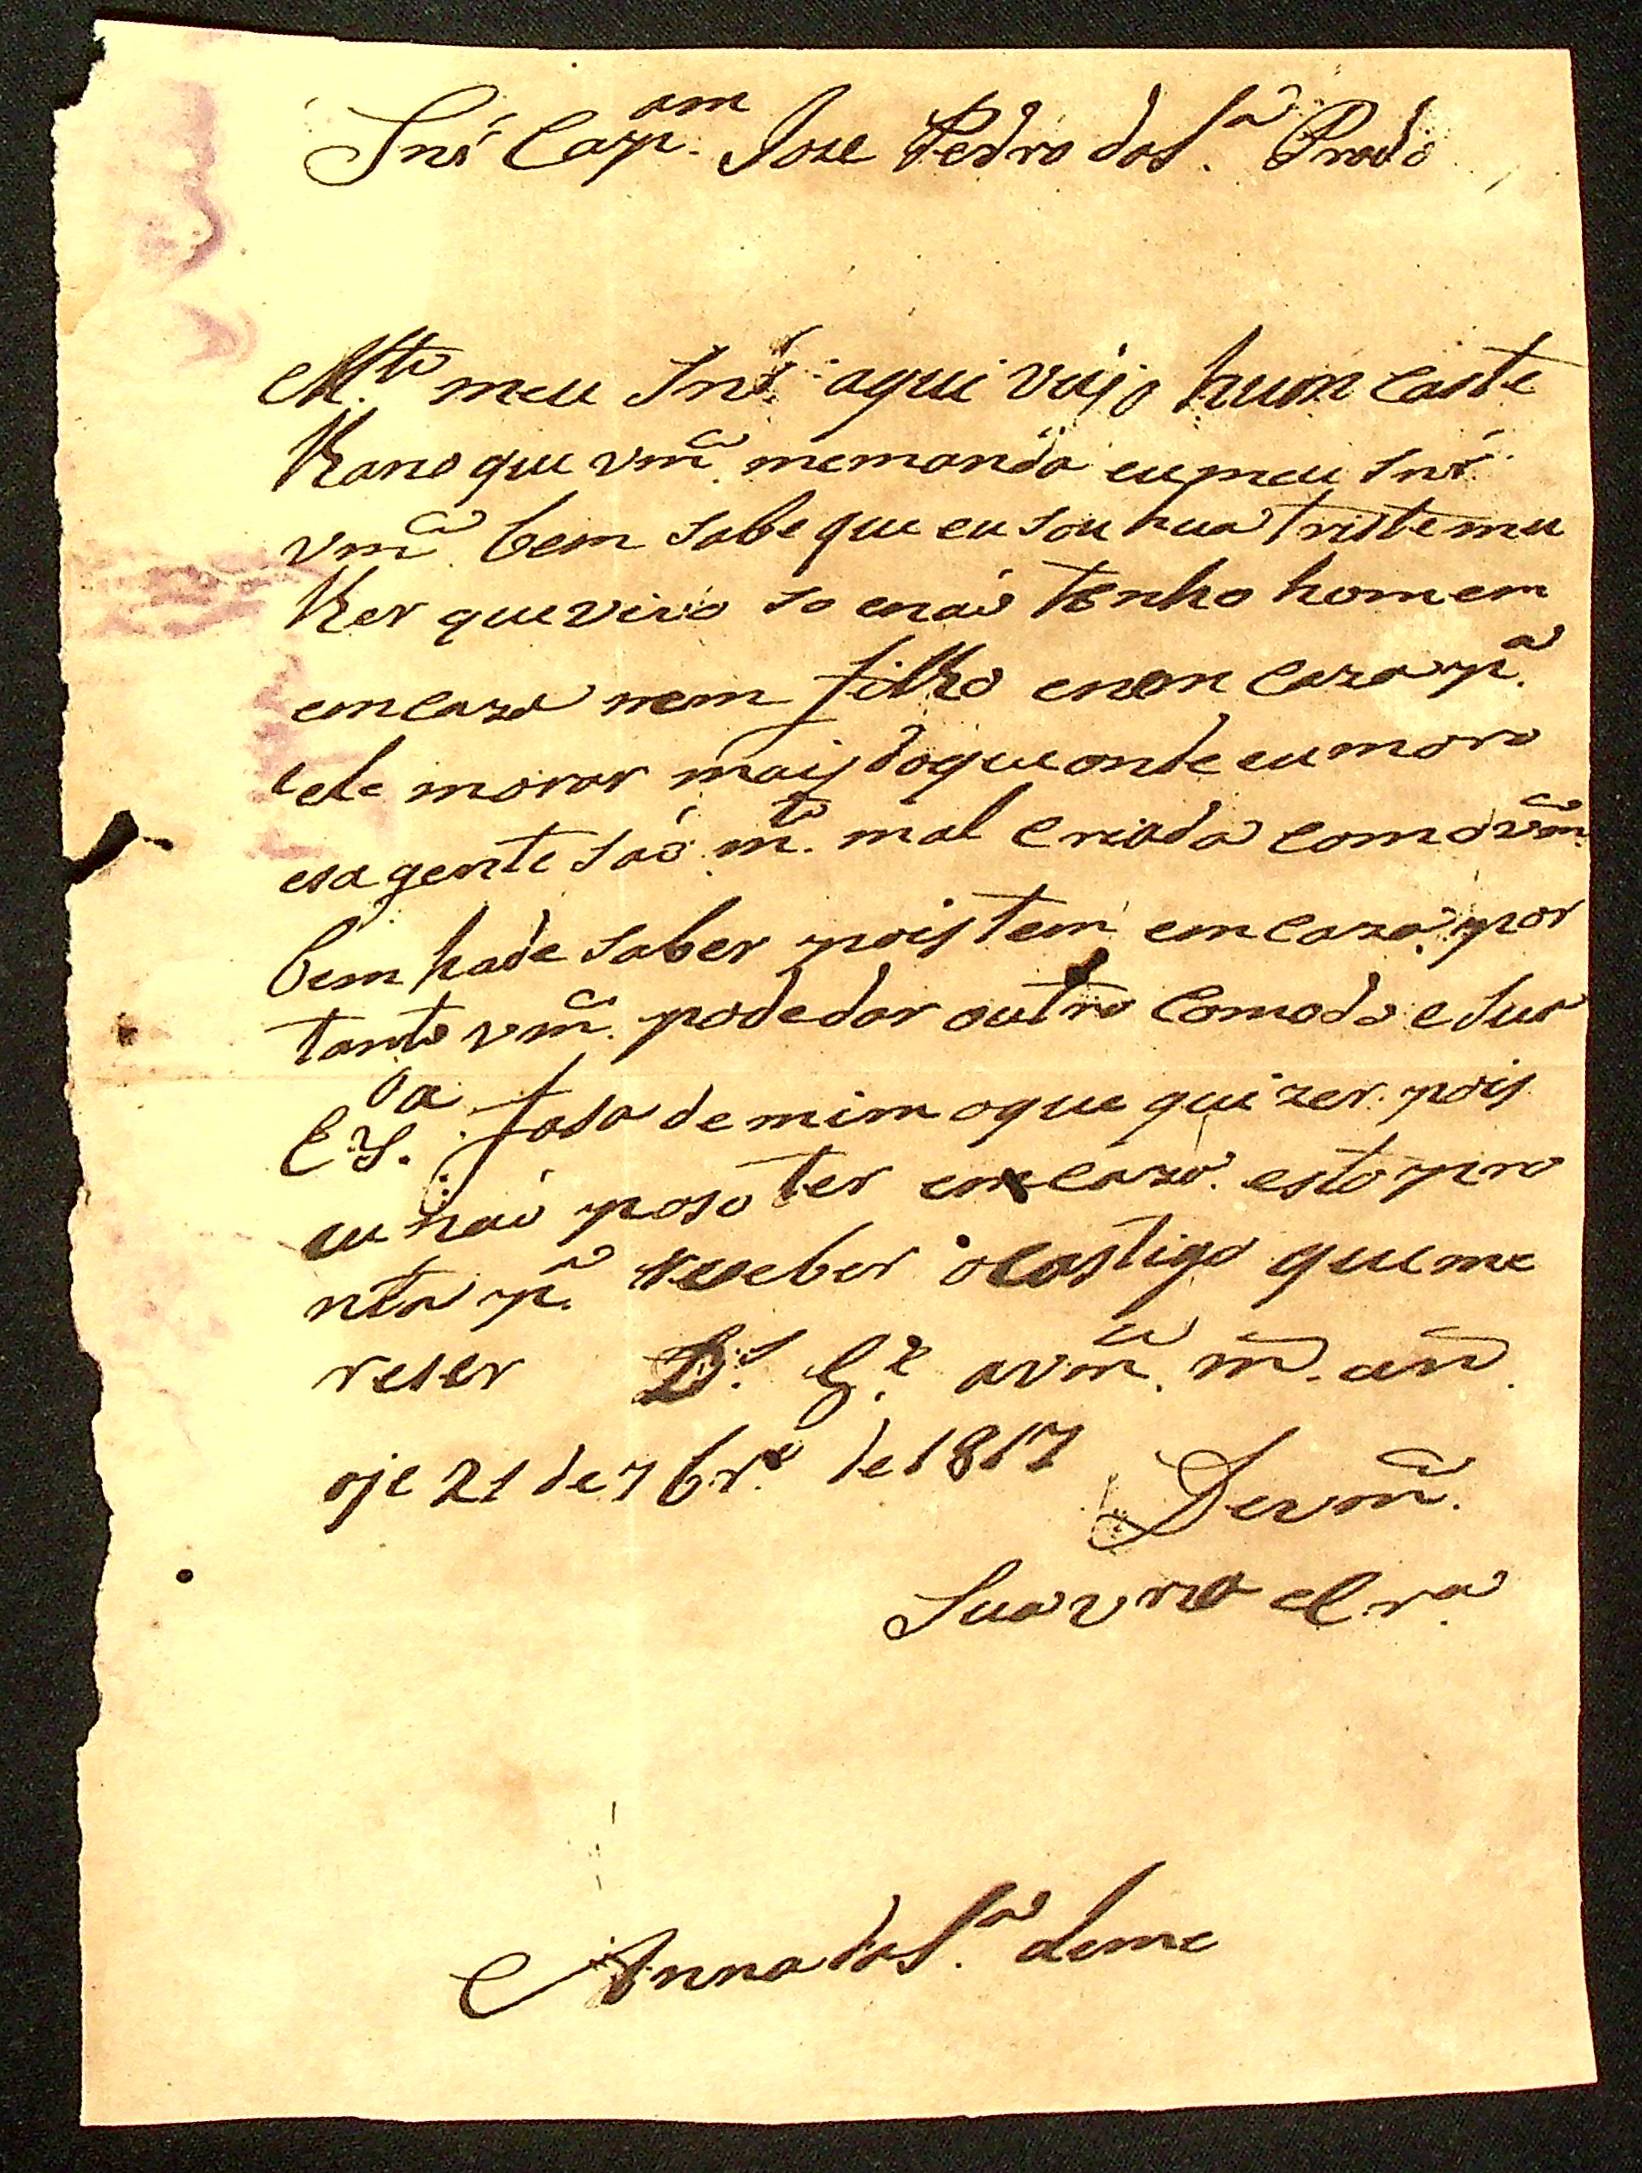 Snr̃ Cap.am Joze Pedro da S.ª Prado
M.to meu Snr̃ aqui vejo hum Caste
lhano que vm.ce me manda eu meu Snr̃
vm.ce bem sabe que eu sou hua triste mu
lher que vivo so e não tenho homem
em caza nem filho e nem caza p.ª
ele morar mais do que onde eu moro
esa gente são m.to mal criada como vm.ce
bem hade saber pois tem em caza por
tanto vm.ce pode dar outro comodo e Sua
Ex.cia fasa de mim o que quizer pois
eu não poso ter em caza esto pro
nta p.ª reseber o castigo que me
reser D.s G.e a vm.ce m. an.
oje 21 de 7br.º de 1817
De vm.ce
Sua v.ra e Cr.ª
Anna da S.ª deme